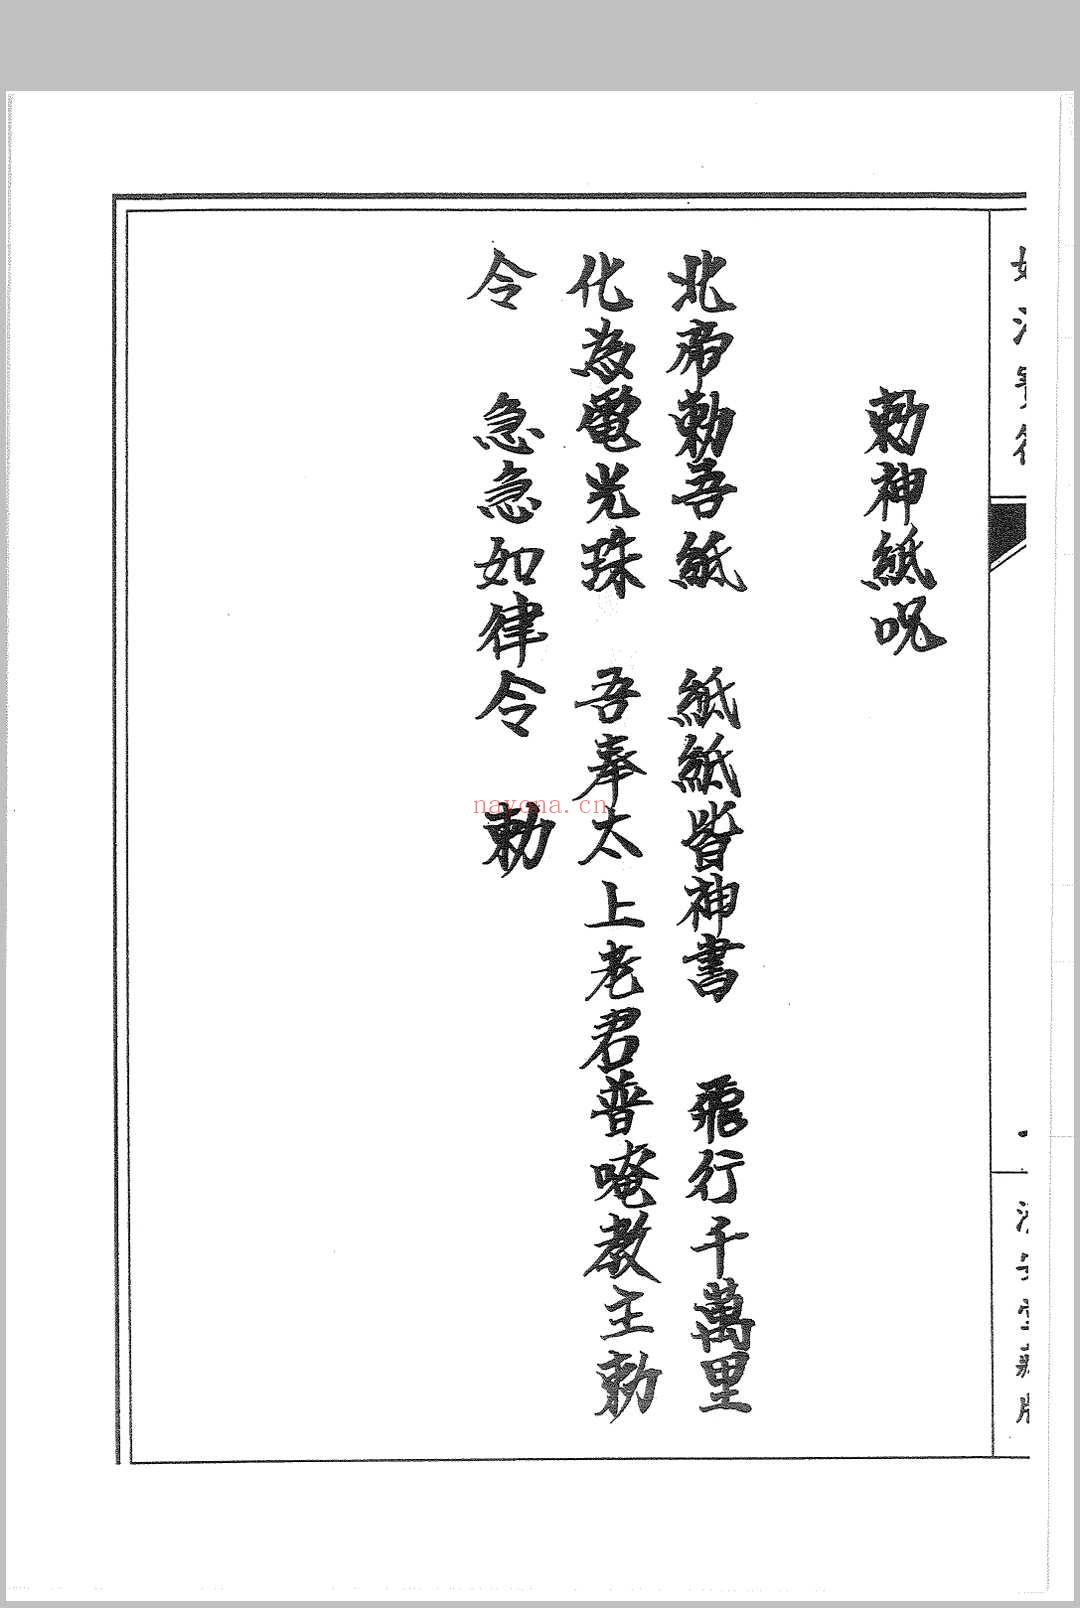 勅神紙呪
北帝勅吾紙　紙紙皆神書　飛行千萬里
化為電光珠　吾奉太上老君普唵教主勅
令　急急如律令　勅
nayona.cn